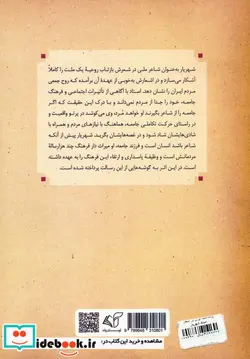 شهریار به‌عنوان شاعر ملی در شعرش بازتاب روحیهٔ یک ملت را کاملاً
آشکار می‌سازد و در اشعارش به‌خوبی از عهدهٔ آن برآمده که روح جمعی
مردم ایران را نشان دهد. استاد با آگاهی از تأثیرات اجتماعی و فرهنگ
جامعه، خود را جدا از مردم نمی‌داند و با درک این حقیقت که اگر
جامعه را از شاعر بگیرند او خواهد مُرد، وی می‌کوشد در پرتو واقعیت و
در راستای حرکت تکاملی جامعه، هماهنگ با نیازهای مردم و همراه با
شادی‌هایشان شاد شود و در غصه‌هایشان بگرید. شهریار پیش از آنکه
شاعر باشد انسان است و فرزند جامعه. او میراث دار فرهنگ چند هزارسالهٔ
مردمانش است و وظیفهٔ پاسداری و ارتقاء این فرهنگ را به عهده داشته
است. در این اثر به گوشه‌هایی از این رسالت پرداخته شده است.
مشاهده و خرید این کتاب در:
idebook.ir